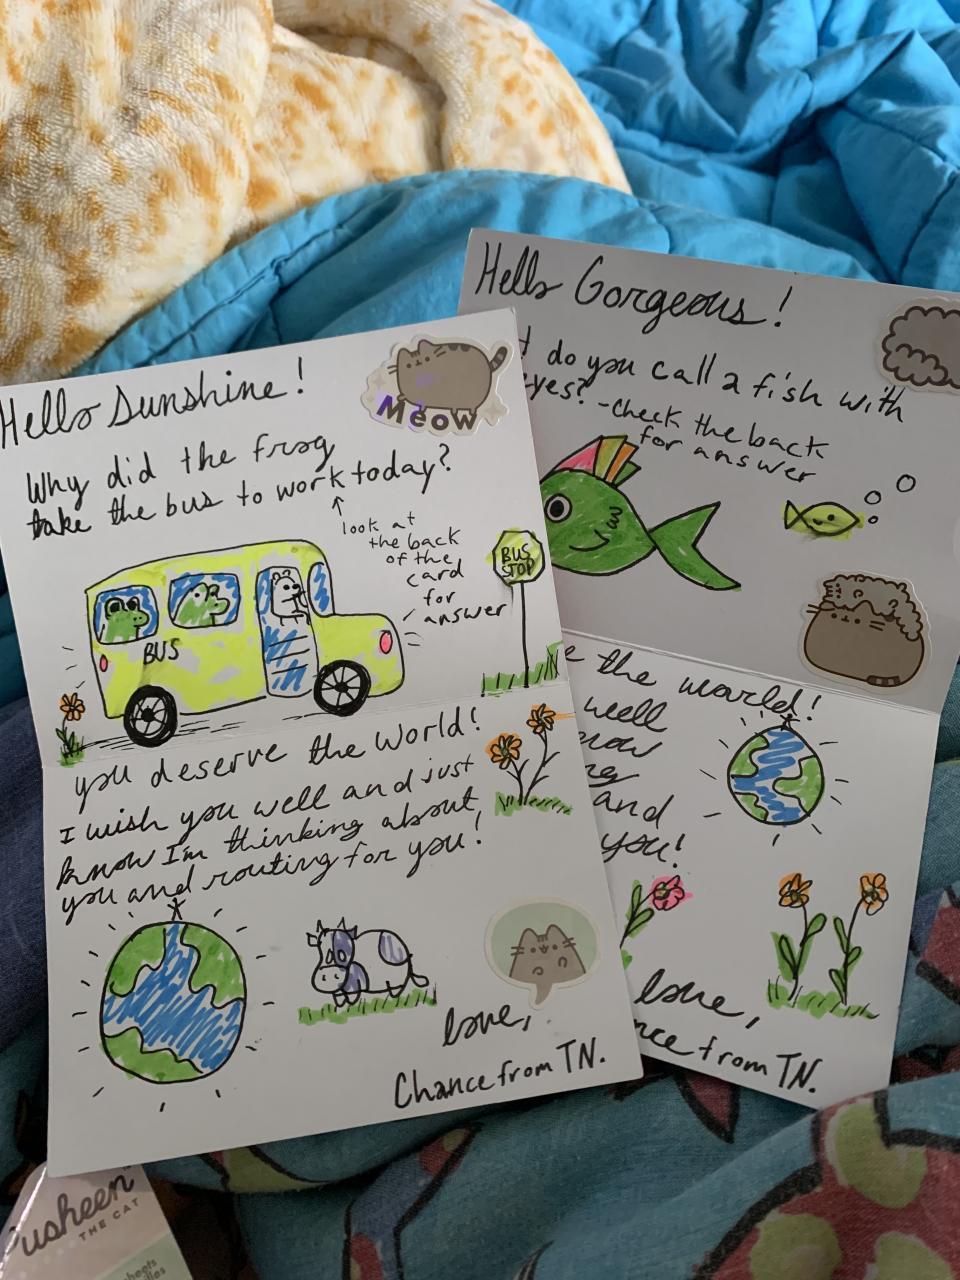 Hello Sunshine!
Meow
Why did the frog
take the bus to work today?
look at
the back
of the
card
for
answer
BUS
STOP
BUS
you deserve the world!
I wish you well and just
know I'm thinking about
you and routing for you!
love,
Chance from TN.
Hello Gorgeous!
do you call a fish with
eyes? -check the back
for answer
the world!
well
and
you!
love,
from TN.
THE CAT